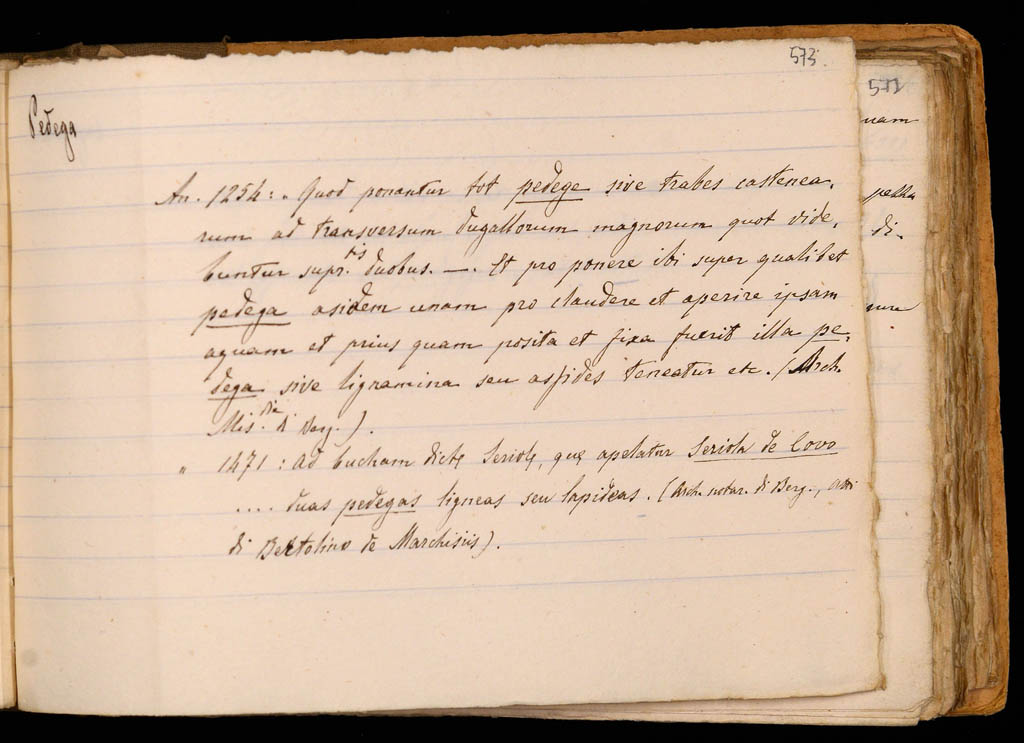 573.
Pedega
An. 1254: „ Quod ponantur tot pedege sive trabes castenea-
rum ad transversum dugallorum magnorum quot vide-
buntur supr.tis duobus. —. Et pro ponere ibi super qualibet
pedega asidem unam pro claudere et aperire ipsam
aquam et prius quam posita et fixa fuerit illa pe-
dega sive lignamina seu assides teneatur etc. (Arch.
Mis.die di Berg.).
„ 1471: ad bucham dictę Seriolę, quę apelatur Seriola de Covo
.... duas pedegas ligneas seu lapideas. (Arch. notar. di Berg., atti
di Bertolino de Marchisiis).
572
uam
di-